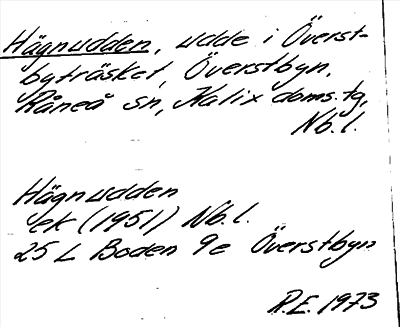 Hägnudden, udde i Överst-
byträsket, Överstbyn,
Råneå sn, Kalix doms.tg,
Nb.l.
Hägnudden
ek (1951) Nb.l.
25 L Boden 9e Överstbyn
R.E. 1973